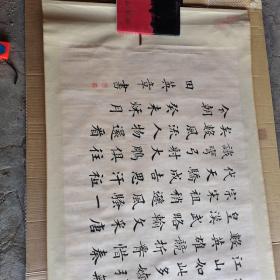 江山如此多嬌引無
數英雄競折腰惜秦
皇漢武略輸文采唐
宗宋祖稍遜風騷一
代天驕成吉思汗祇
識彎弓射大鵰俱往
矣數風流人物還看
今朝 癸未秋月
田英章書